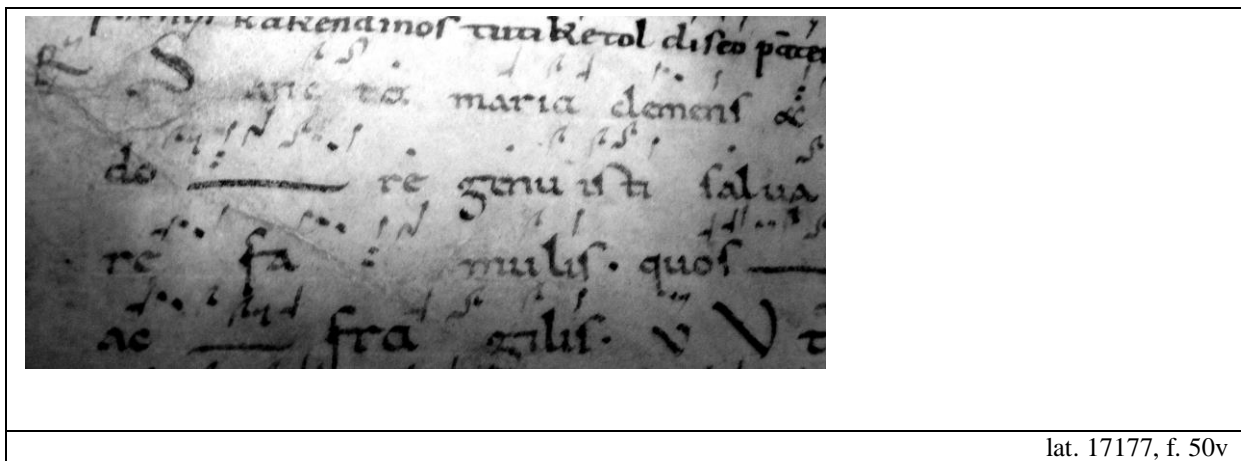 kakendinos tuti ketol diseo pāter
R S anc ta maria clemens &
do re genu isti salua
re fa mulis. quos
ac fra gilis. V V t
lat. 17177, f. 50v